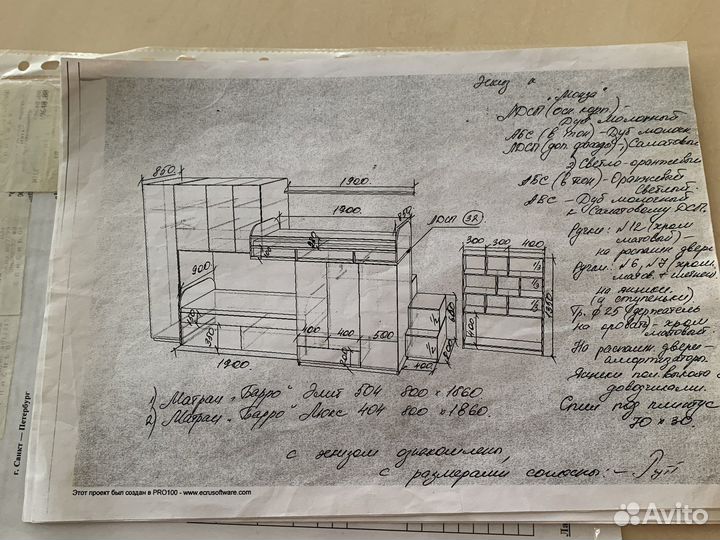 Эскиз
"Мозга"
ЛДСП (осн. корп) -
Дуб Молочный
АБС (в тон) - Дуб молочн
ЛДСП (доп. фасад) - Саматовый
2) Светло-оранжевый
АБС (в тон) - Оранжевый
Светлый.
АБС - Дуб молочный
к Саматовому ДСП.
Ручки: N12 (хром
матовый) -
на распашн. двери
Ручки: N6, N7 (хром,
матов. +
на ящики.
(и ступеньки)
Тр. ф 25 (держатель
на кровать) - хром
матовый.
На распашн. двери -
амортизаторы.
Ящики полн выката с
доводчиками.
Спил под плинтус
70 x 30.
860
1900.
1900.
850
ЛДСП (3R)
900
400
400
500
1900.
350
200
400
1/2
1/2
300 300 400
1/3
1/3
1/3
400
1350
1) Матрац "Барро" Элит 504 800 x 1860
2) Матрац "Барро" Люкс 404 800 x 1860.
с эскизом ознакомлены,
с размерами согласны: -
Этот проект был создан в PRO100 - www.ecrusoftware.com
г. Санкт — Петербург
Avito